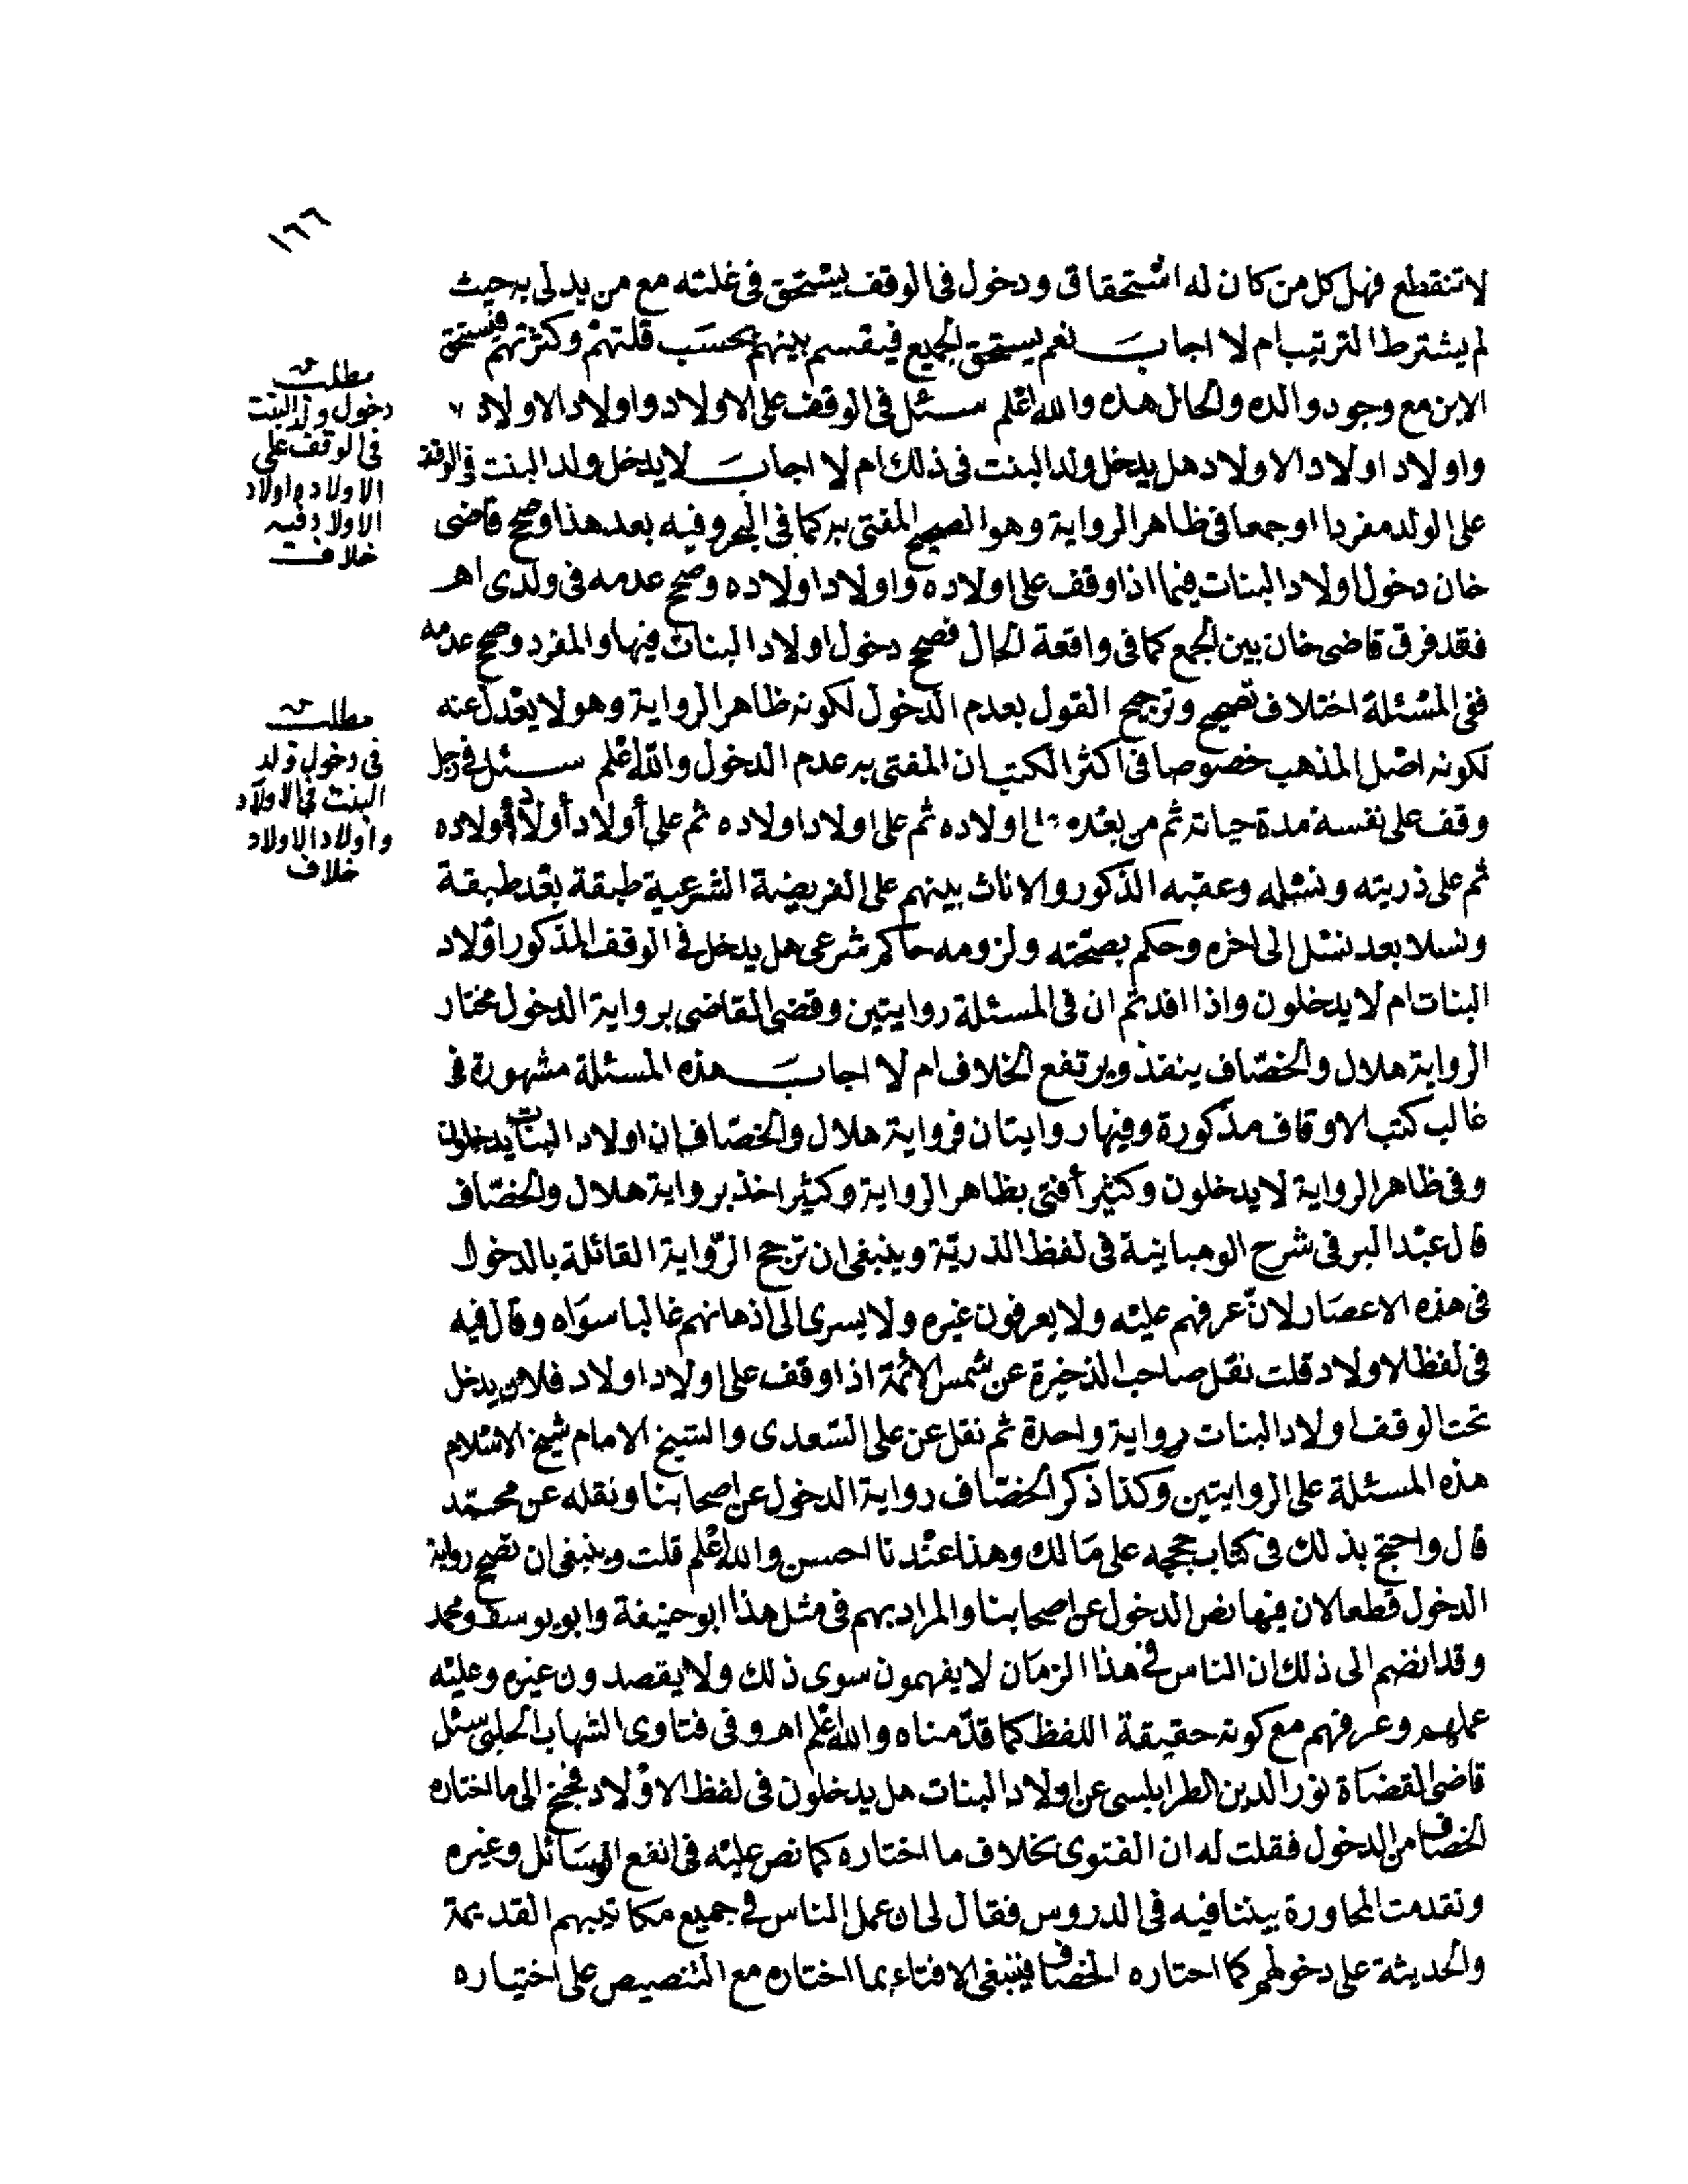 ١٦٦
لا تنقطع فهل كل من كان له استحقاق ودخول فى الوقف يستحق فى غلته مع من يدلى به حيث
لم يشترط الترتيب ام لا اجاب نعم يستحق الجميع فيقسم بينهم بحسب قلتهم وكثرتهم فيستحق
الابن مع وجود والده والحال هذه والله اعلم سئل فى الوقف على الاولاد واولاد الاولاد
واولاد اولاد الاولاد هل يدخل ولد البنت فى ذلك ام لا اجاب لا يدخل ولد البنت فى الوقف
على الولد مفردا او جمعا فى ظاهر الرواية وهو الصحيح المفتى به كما فى البحر وفيه بعد هذا وصحح قاضى
خان دخول اولاد البنات فيما اذا وقف على اولاده واولاد اولاده وصحح عدمه فى ولدى اهـ
فقد فرق قاضى خان بين الجمع كما فى واقعة الحال فصحح دخول اولاد البنات فيها والمفرد وصحح عدمه
ففى المسئلة اختلاف تصحيح وترجح القول بعدم الدخول لكونه ظاهر الرواية وهو لا يعدل عنه
لكونه اصل المذهب خصوصا فى اكثر الكتب ان المفتى به عدم الدخول والله اعلم سئل فى رجل
وقف على نفسه مدة حياته ثم من بعده على اولاده ثم على اولاد اولاده ثم على أولاد أولاد أولاده
ثم على ذريته ونسله وعقبه الذكور والاناث بينهم على الفريضة الشرعية طبقة بعد طبقة
ونسلا بعد نسل الى اخره وحكم بصحته ولزومه حاكم شرعى هل يدخل فى الوقف المذكور اولاد
البنات ام لا يدخلون واذا افدتم ان فى المسئلة روايتين وقضى القاضى برواية الدخول مختار
الرواية هلال والخصاف ينفذ ويرتفع الخلاف ام لا اجاب هذه المسئلة مشهورة فى
غالب كتب الاوقاف مذكورة وفيها روايتان فرواية هلال والخصاف ان اولاد البنات يدخلون
وفى ظاهر الرواية لا يدخلون وكثير أفتى بظاهر الرواية وكثير اخذ برواية هلال والخصاف
قال عبد البر فى شرح الوهبانية فى لفظ الذرية وينبغى ان ترجح الرواية القائلة بالدخول
فى هذه الاعصار لان عرفهم عليه ولا يعرفون غيره ولا يسرى الى اذهانهم غالبا سواه وقال فيه
فى لفظ الاولاد قلت نقل صاحب الذخيرة عن شمس الائمة اذا وقف على اولاد اولاد فلان يدخل
تحت الوقف اولاد البنات رواية واحدة ثم نقل عن على السعدى والشيخ الامام شيخ الاسلام
هذه المسئلة على الروايتين وكذا ذكر الخصاف رواية الدخول عن اصحابنا ونقله عن محمد
قال واحتج بذلك فى كتاب حججه على مالك وهذا عندنا احسن والله اعلم قلت وينبغى ان تصحح رواية
الدخول قطعا لان فيها نص الدخول عن اصحابنا والمراد بهم فى مثل هذا ابو حنيفة وابو يوسف ومحمد
وقد انضم الى ذلك ان الناس فى هذا الزمان لا يفهمون سوى ذلك ولا يقصدون غيره وعليه
عملهم وعرفهم مع كونه حقيقة اللفظ كما قدمناه والله اعلم اهـ وفى فتاوى الشهاب الحلبى سئل
قاضى القضاة نور الدين الطرابلسى عن اولاد البنات هل يدخلون فى لفظ الاولاد فجنح الى ما اختاره
الخصاف من الدخول فقلت له ان الفتوى بخلاف ما اختاره كما نص عليه فى انفع الوسائل وغيره
وتقدمت المحاورة بيننا فيه فى الدروس فقال لى ان عمل الناس فى جميع مكاتيبهم القديمة
والحديثة على دخولهم كما اختاره الخصاف فينبغى الافتاء بما اختاره مع التنصيص على اختياره
مطلب
دخول ولد البنت
فى الوقف على
الاولاد واولاد
الاولاد فيه
خلاف
مطلب
فى دخول ولد
البنت فى الاولاد
واولاد الاولاد
خلاف